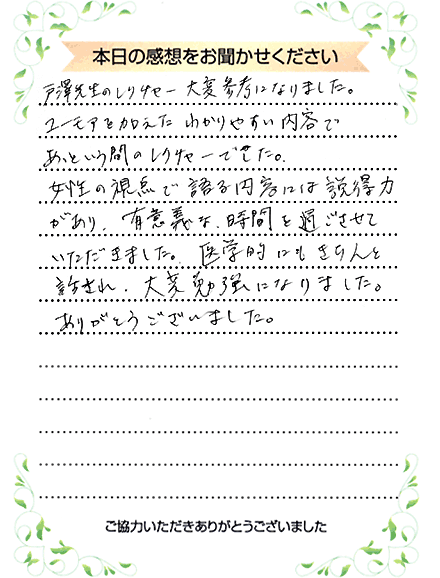 本日の感想をお聞かせください
戸澤先生のレクチャー 大変参考になりました。
ユーモアを加えた わかりやすい内容で
あっという間のレクチャーでした。
女性の視点で語る内容には説得力
があり、有意義な時間を過ごさせて
いただきました。医学的にもきちんと
話され、大変勉強になりました。
ありがとうございました。
ご協力いただきありがとうございました